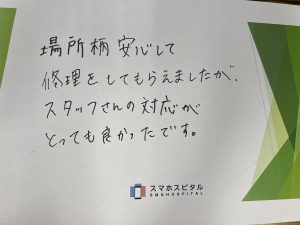 場所柄安心して
修理をしてもらえましたが、
スタッフさんの対応が
とっても良かったです。
スマホスピタル
SMAHOSPITAL